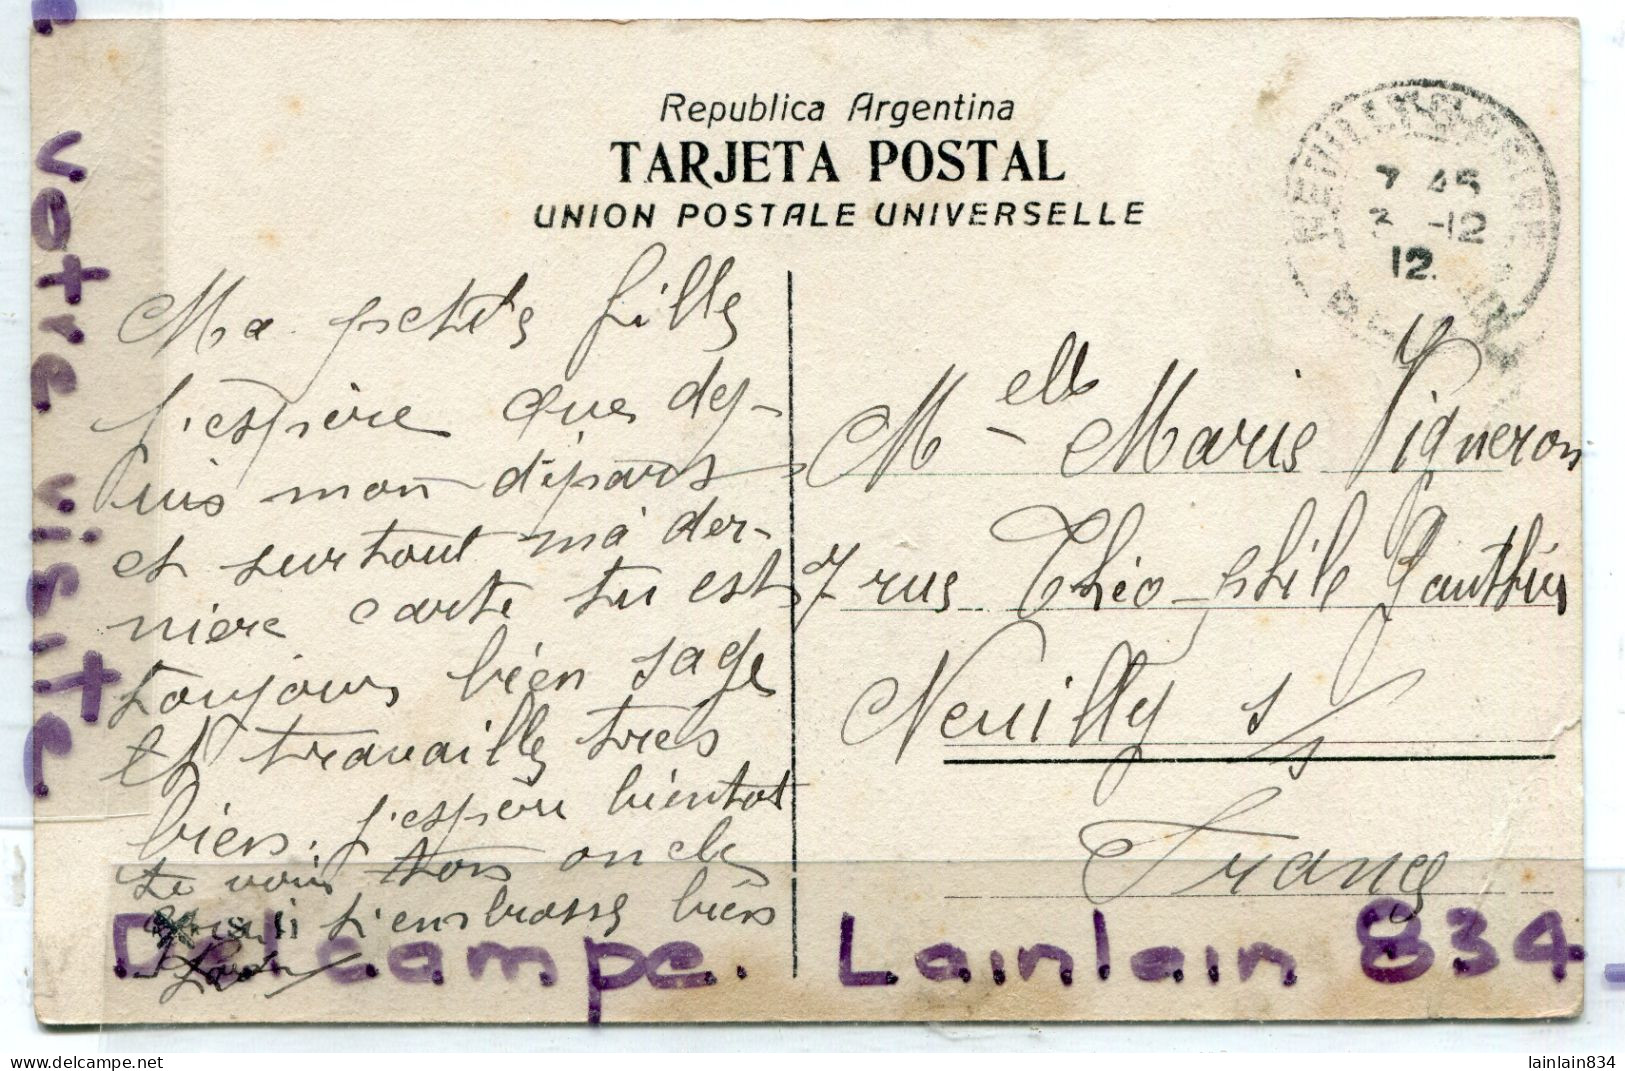 Republica Argentina
TARJETA POSTAL
UNION POSTALE UNIVERSELLE
7 45
3 -12
12
Ma petite fille
j'espère que de-
puis mon départ
et surtout ma der-
nière carte tu est
toujours bien sage
et travaille très
bien. j'espère bientot
te voir ton oncle
qui t'embrasse bien
Melle Marie Vigneron
7 rue Théo-phile Gauthier
Neuilly s/s
France
votre visite
Delcampe. Lainlain 834
delcampe.net
lainlain834